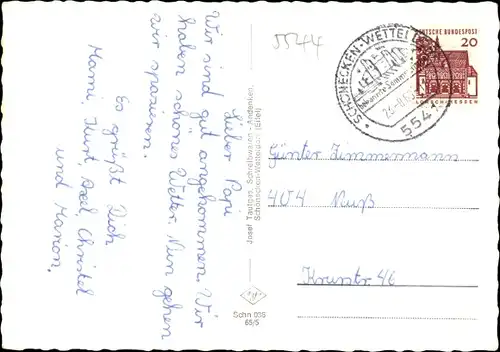 Lieber Papi
Wir sind gut angekommen. Wir
haben schönes Wetter. Nun gehen
wir spazieren.
Es grüßt Dich
Mami, Kurt, Axel, Christel
und Marion.
5544
Josef Tautges, Schreibwaren - Andenken,
Schönecken-Wetteldorf (Eifel)
Schn 038
65/5
SCHÖNECKEN-WETTELDORF
554
DEUTSCHE BUNDESPOST
20
LORSCH/HESSEN
Günter Zimmermann
404 Neuß
Krurstr. 46